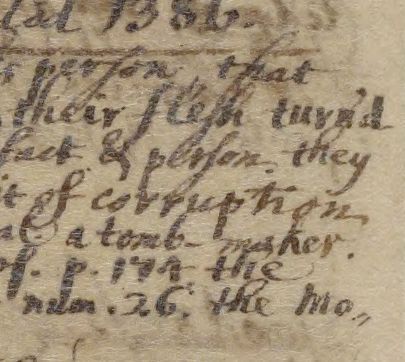 1386.
person, that
their flesh turn'd
fact & person. they
it of corruption,
a tomb-maker.
p. 174 the
num. 26. the Mo,,